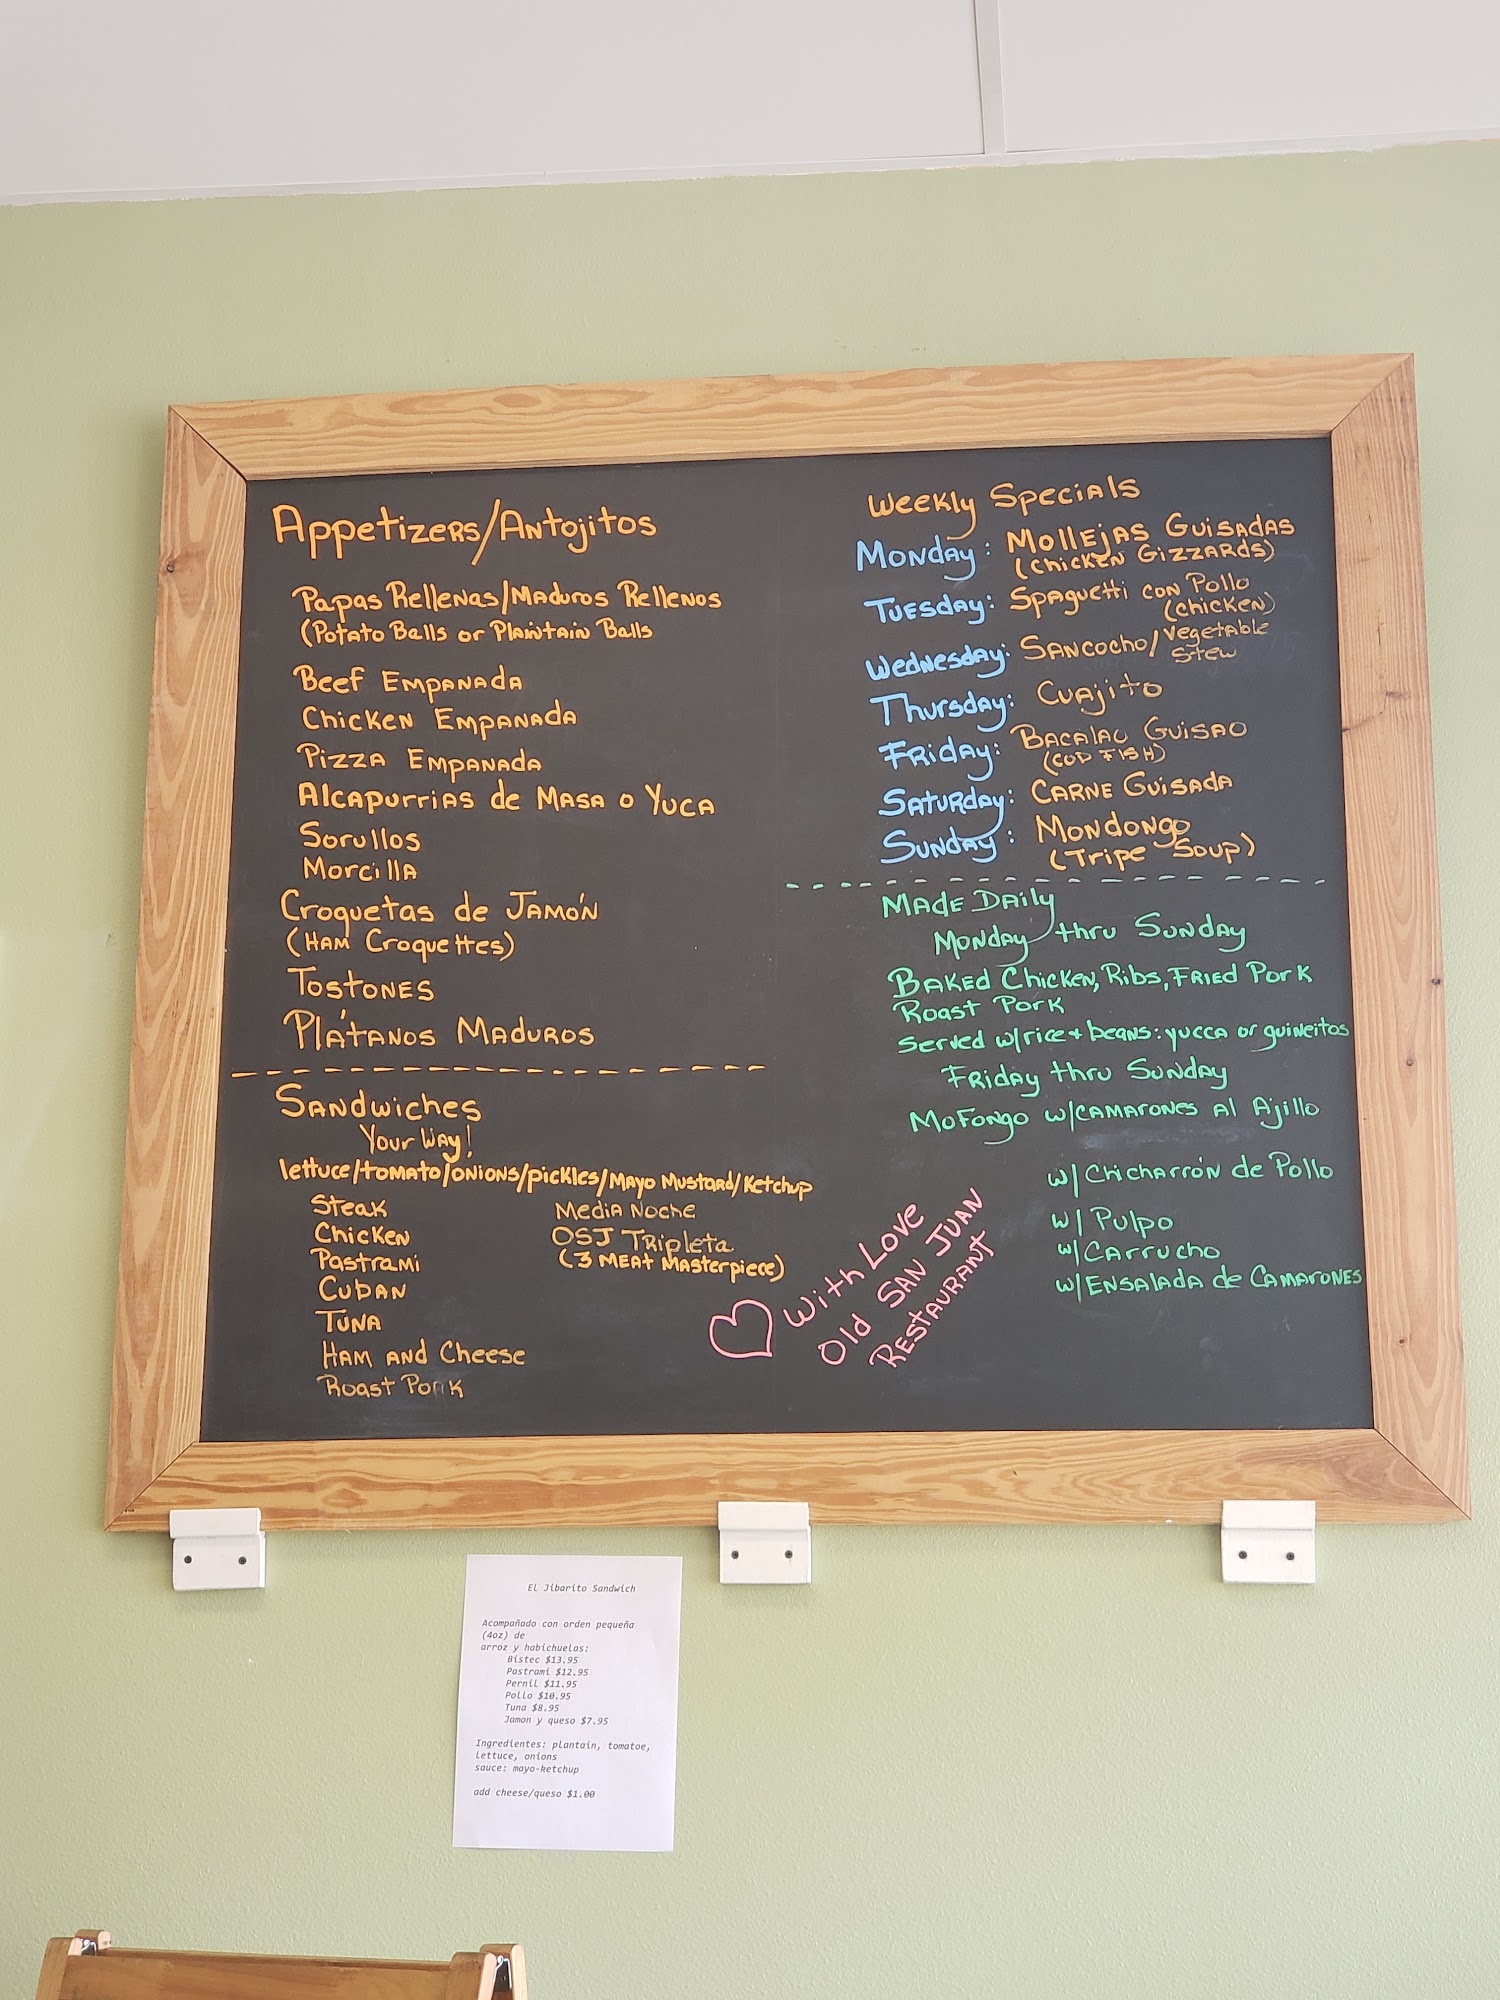 Appetizers/Antojitos
Papas Rellenas/Maduros Rellenos
(Potato Balls or Plaintain Balls
Beef Empanada
Chicken Empanada
Pizza Empanada
Alcapurrias de Masa o Yuca
Sorullos
Morcilla
Croquetas de Jamón
(Ham Croquettes)
Tostones
Plátanos Maduros
Sandwiches
Your Way!
lettuce/tomato/onions/pickles/Mayo Mustard/Ketchup
Steak
Chicken
Pastrami
Cuban
Tuna
Ham and Cheese
Roast Pork
Media Noche
OSJ Tripleta
(3 Meat Masterpiece)
Weekly Specials
Monday: Mollejas Guisadas
(Chicken Gizzards)
Tuesday: Spaguetti con Pollo
(chicken)
Wednesday: Sancocho/Vegetable
Stew
Thursday: Cuajito
Friday: Bacalao Guisao
(Cod Fish)
Saturday: Carne Guisada
Sunday: Mondongo
(Tripe Soup)
Made Daily
Monday thru Sunday
Baked Chicken, Ribs, Fried Pork
Roast Pork
Served w/rice + beans: yucca or guineitos
Friday thru Sunday
Mofongo w/camarones al Ajillo
w/Chicharrón de Pollo
w/ Pulpo
w/Carrucho
w/Ensalada de Camarones
With Love
Old San Juan
Restaurant
El Jibarito Sandwich
Acompañado con orden pequeña
(4oz) de
arroz y habichuelas:
Bistec $13.95
Pastrami $12.95
Pernil $11.95
Pollo $10.95
Tuna $8.95
Jamon y queso $7.95
Ingredientes: plantain, tomatoe,
lettuce, onions
sauce: mayo-ketchup
add cheese/queso $1.00